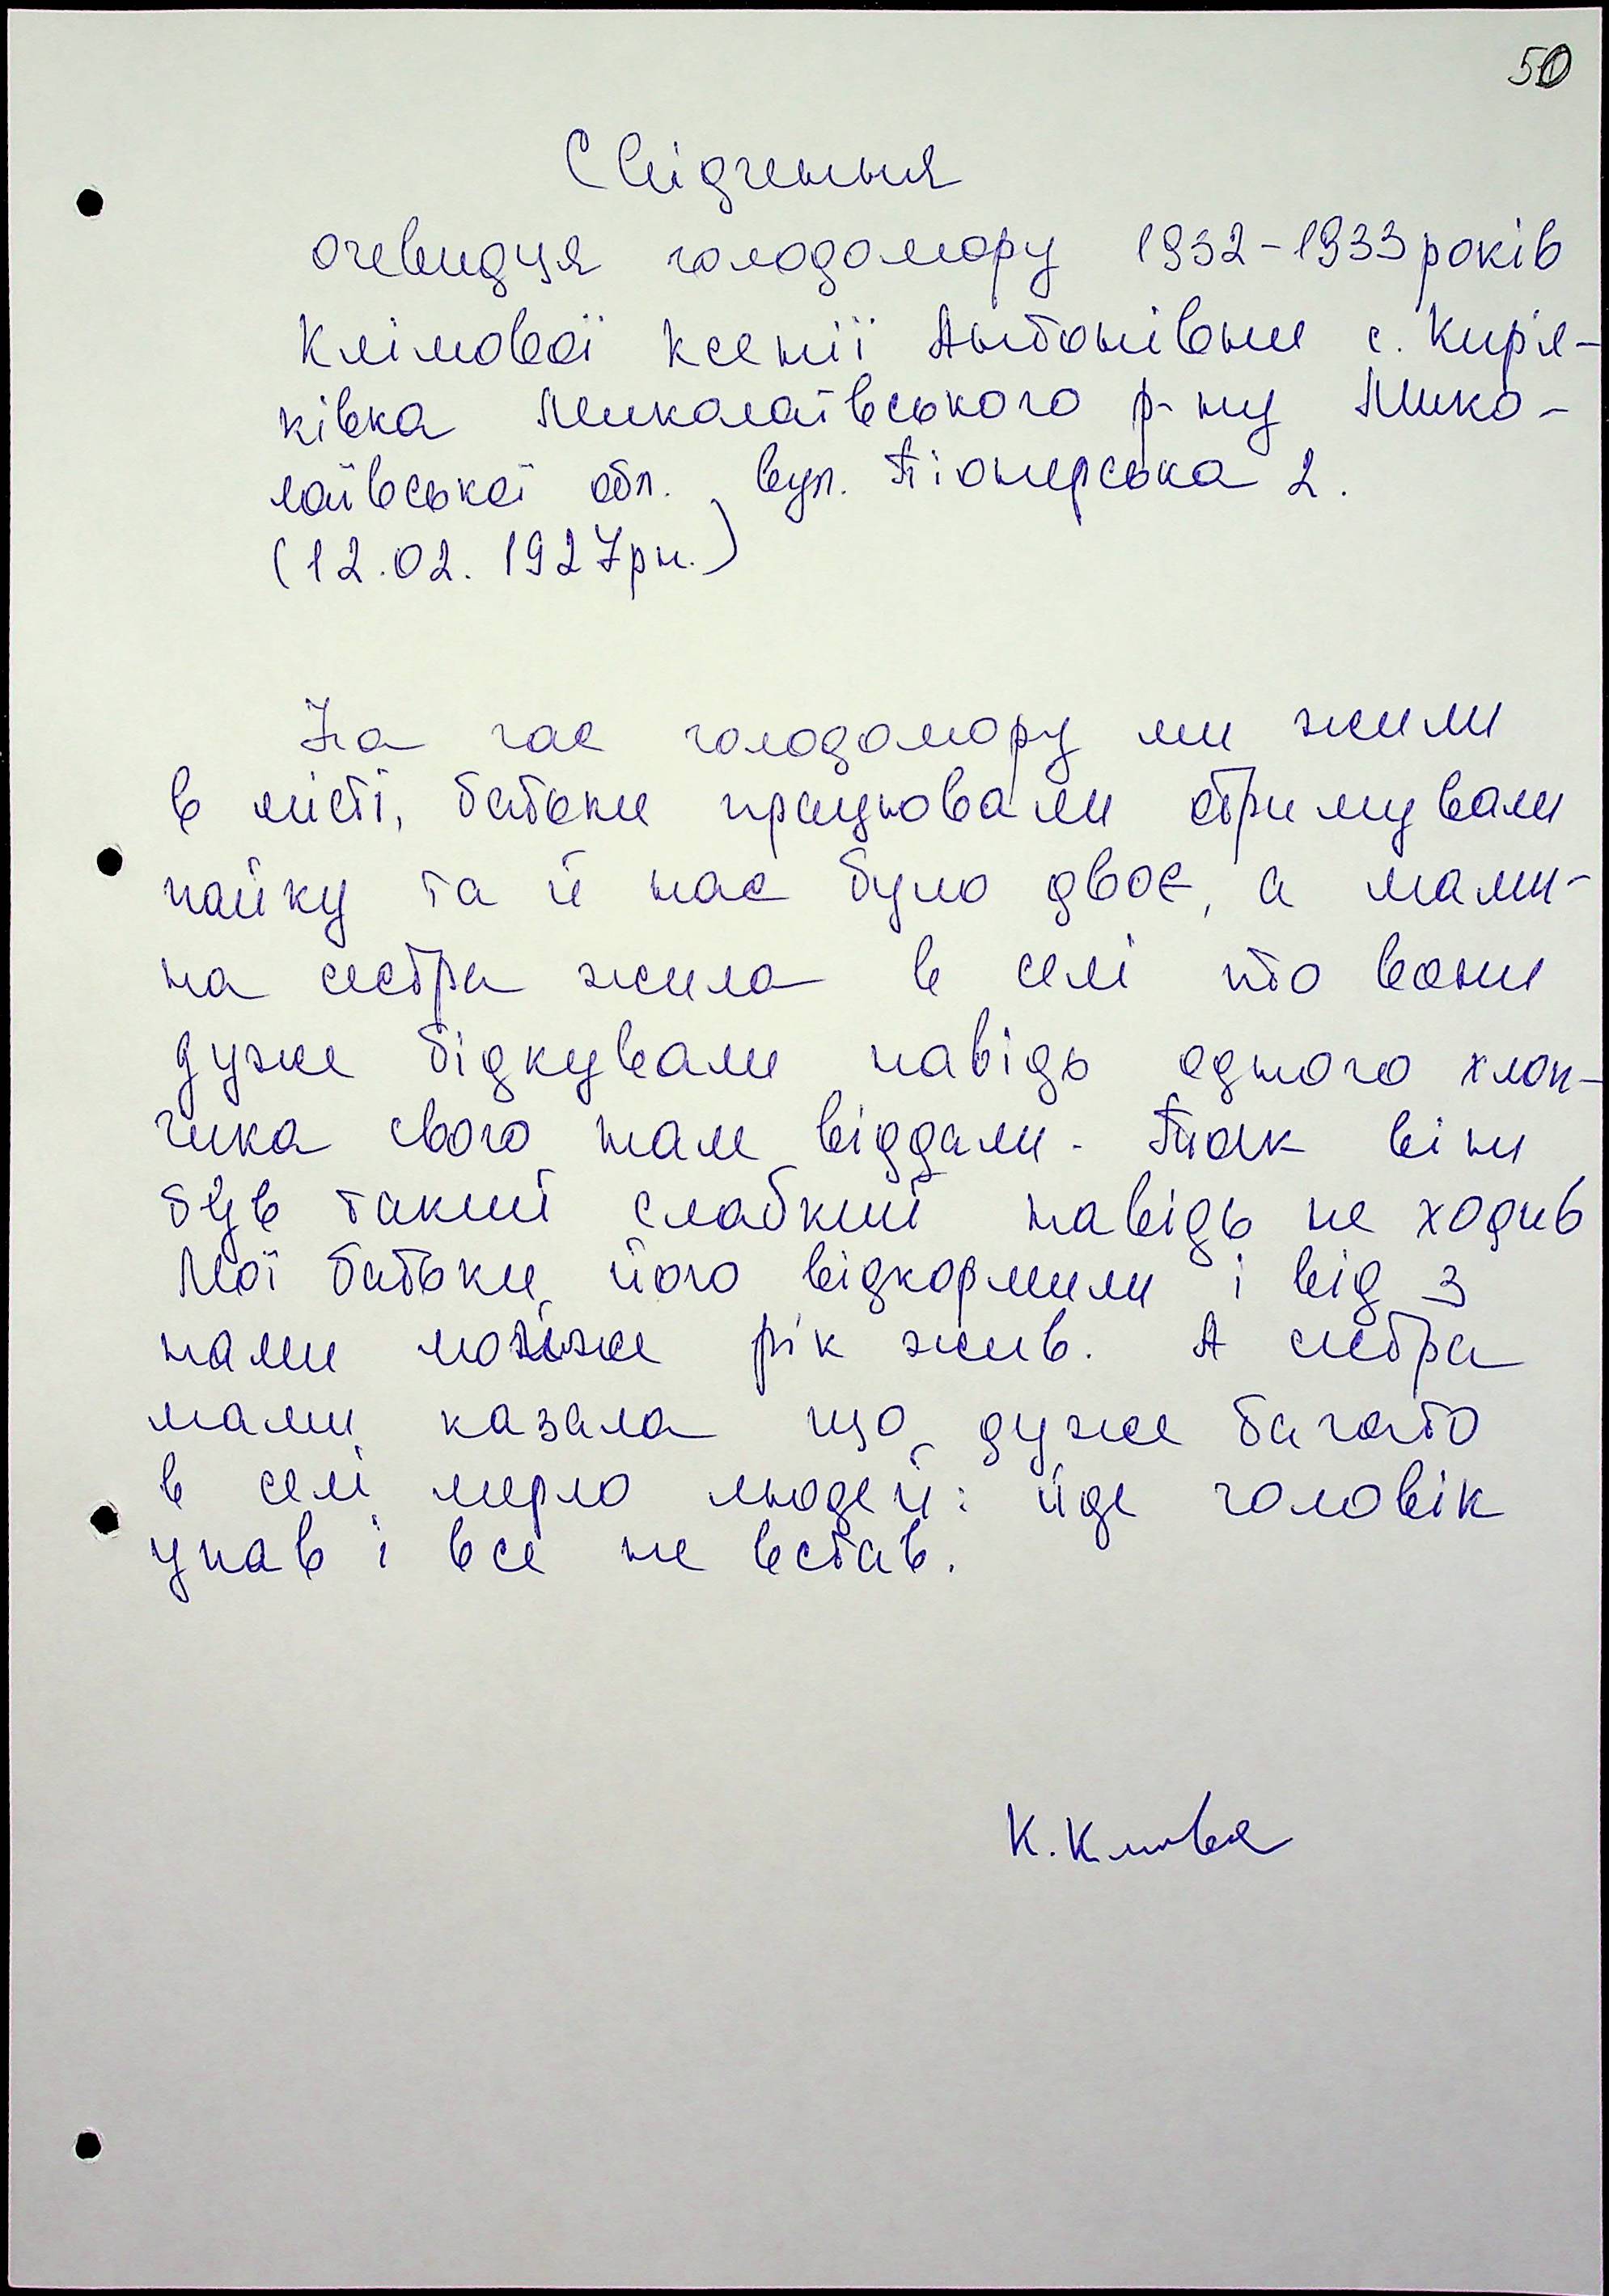 50
Свідчення
очевидця голодомору 1932-1933 років
Клімової Ксенії Антонівни с. Кир'я-
ківка Миколаївського р-ну Мико-
лаївської обл. вул. Піонерська 2.
(12.02.1927рн.)
На час голодомору ми жили
в місті, батьки працювали отримували
пайку та й нас було двоє, а мами-
на сестра жила в селі то вони
дуже бідкували навідь одного хлоп-
чика свого нам віддали. Так він
був такий слабкий навідь не ходив
Мої батьки його відкормили і від з
нами може рік жив. А сестра
мами казала що дуже багато
в селі мерло людей: йде чоловік
упав і все не встав.
К.